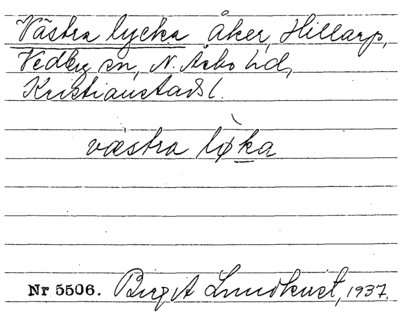 Västra lycka åker, Hillarp,
Vedby sn, N. Åsbo hd,
Kristianstads l.
västra lø̀ka
Nr 5506. Birgit Lundkvist, 1937.